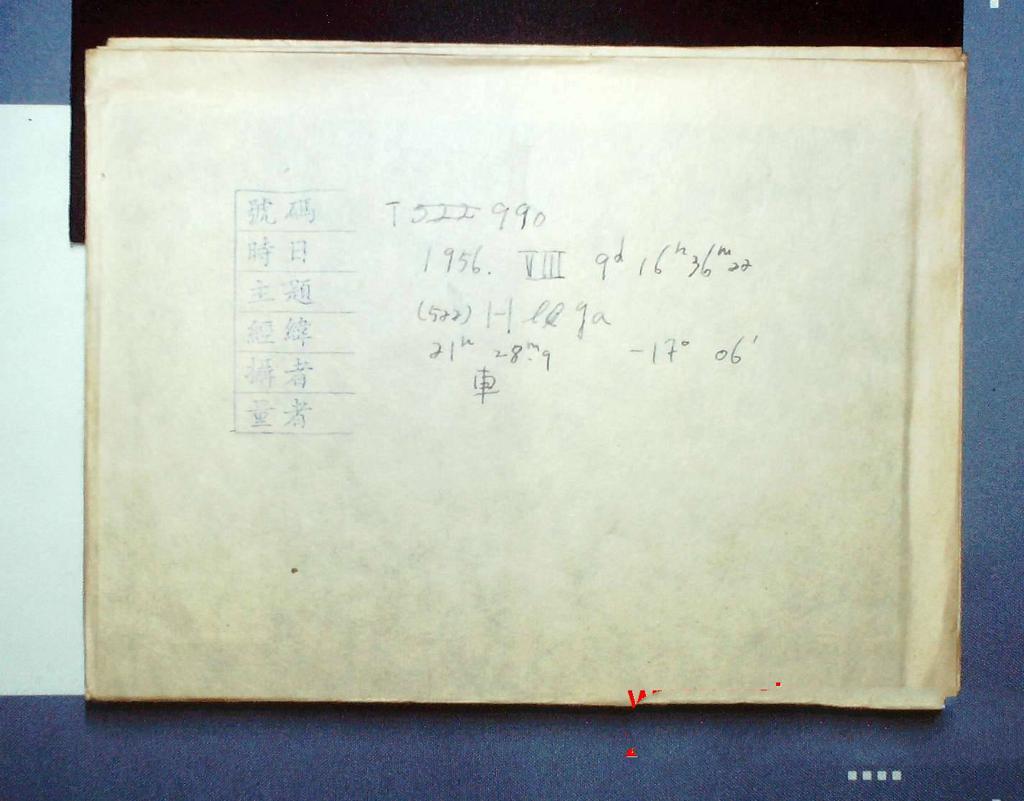 號碼 T 522 990
時日 1956. VIII 9d 16h 36m 22
主題 (522) Helga
經緯 21h 28m.9 -17° 06'
攝者 車
量者